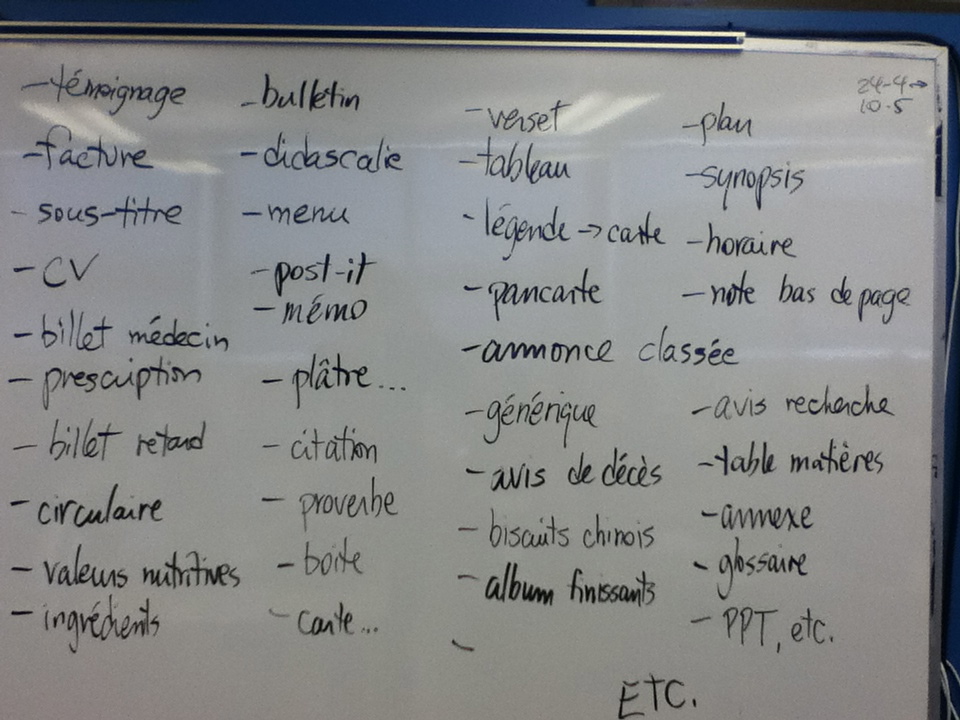 -témoignage
-facture
-sous-titre
-CV
-billet médecin
-prescription
-billet retard
-circulaire
-valeurs nutritives
-ingrédients
-bulletin
-didascalie
-menu
-post-it
-mémo
-plâtre...
-citation
-proverbe
-boite
-carte...
-verset
-tableau
-légende → carte
-pancarte
-annonce classée
-générique
-avis de décès
-biscuits chinois
-album finissants
-
-plan
-synopsis
-horaire
-note bas de page
-avis recherche
-table matières
-annexe
-glossaire
-PPT, etc.
ETC.
24-4→
10-5